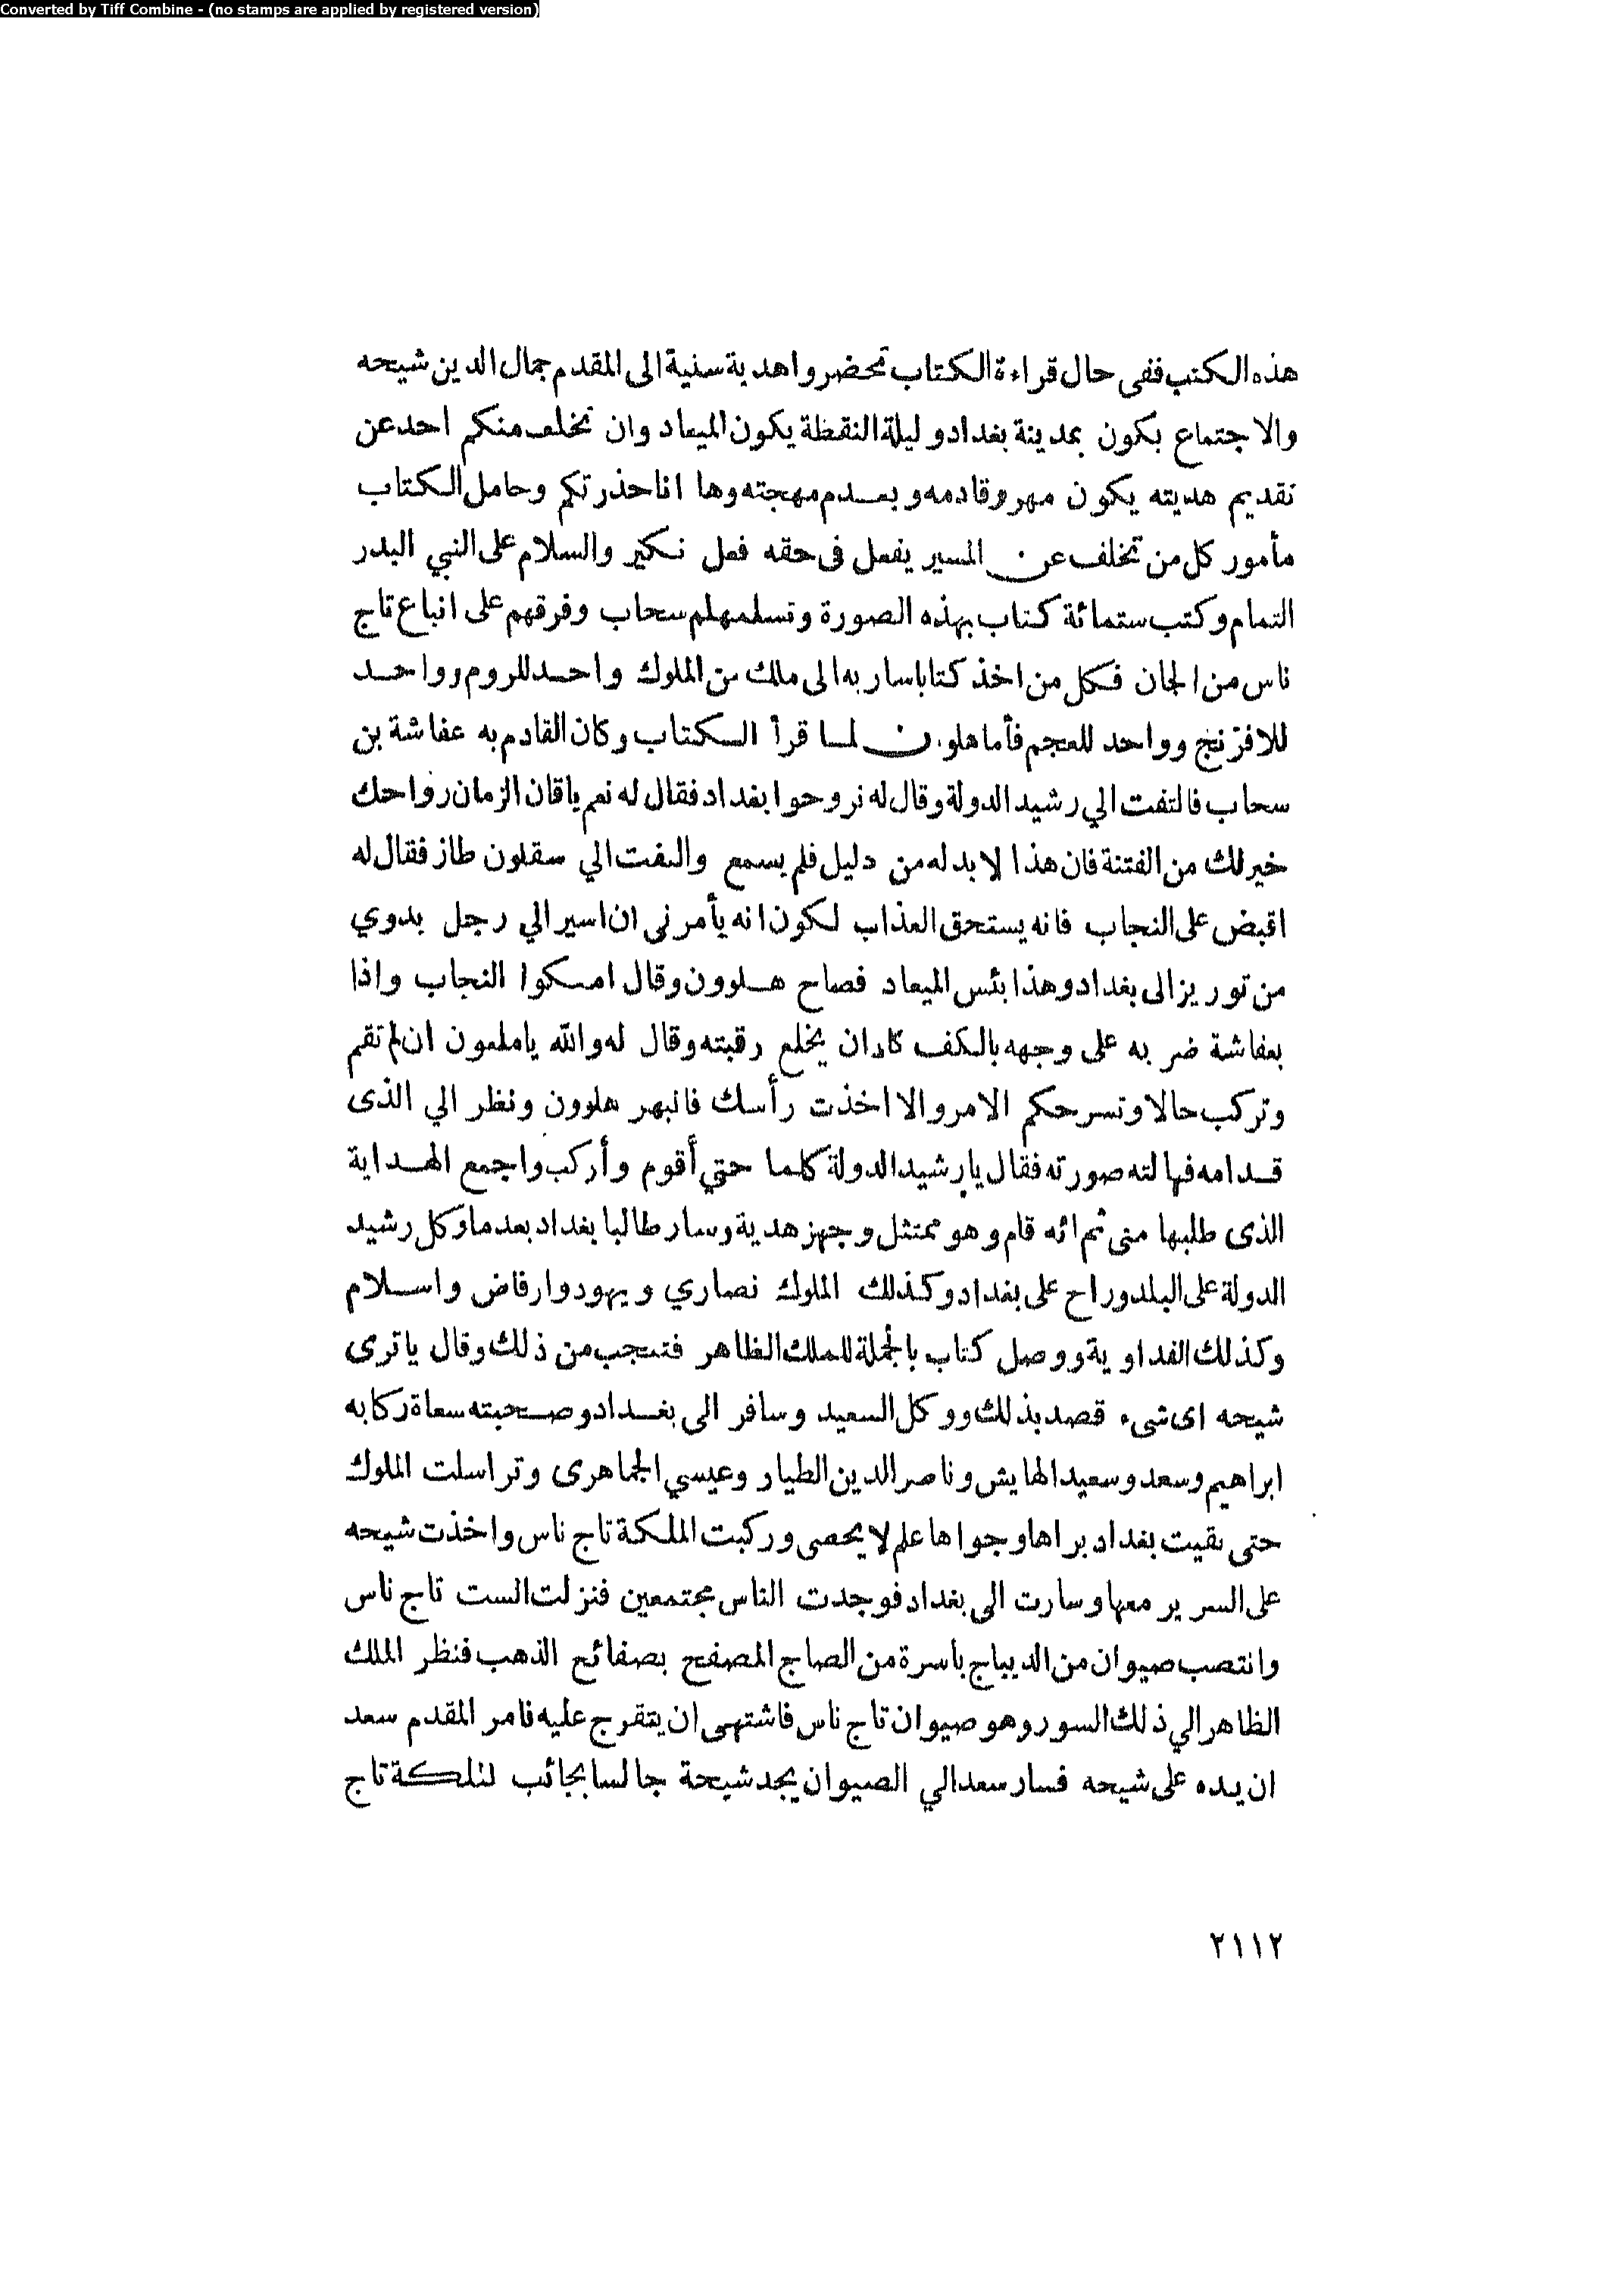 Converted by Tiff Combine - (no stamps are applied by registered version)
هذه الكتب ففى حال قراءة الكتاب تحضروا هدية سنية الى المقدم جمال الدين شيحه
والاجتماع يكون بمدينة بغداد وليلة النقطة يكون الميعاد وان تخلف منكم احد عن
تقديم هديته يكون مهروقا دمه وبعدم مهجته وها انا حذرتكم وحامل الكتاب
مأمور كل من تخلف عن المسير يفعل فى حقه فعل نكير والسلام على النبي البدر
التمام وكتب ستمائة كتاب بهذه الصورة وتسلمهلم سحاب وفرقهم على اتباع تاج
ناس من الجان فكل من اخذ كتابا سار به الى ملك من الملوك واحد للروم وواحد
للافرنج وواحد للعجم فأما هلوون لما قرأ الكتاب وكان القادم به عفاشة بن
سحاب فالتفت الي رشيد الدولة وقال له نروحوا بغداد فقال له نعم ياقان الزمان رواحك
خير لك من الفتنة فان هذا لا بد له من دليل فلم يسمع والتفت الي سقلون طاز فقال له
اقبض على النجاب فانه يستحق العذاب لكون انه يأمرنى ان اسير الي رجل بدوي
من توريز الى بغداد وهذا بئس الميعاد فصاح هلوون وقال امسكوا النجاب واذا
بعفاشة ضربه على وجهه بالكف كاد ان يخلع رقبته وقال له والله ياملعون ان لم تقم
وتركب حالا وتسرحكم الامر والا اخذت رأسك فانبهر هلوون ونظر الي الذى
قدامه فهالته صورته فقال يارشيد الدولة كلما حتي أقوم وأركب واجمع الهداية
الذى طلبها منى ثم انه قام وهو ممتثل وجهز هدية وسار طالبا بغداد بعد ماوكل رشيد
الدولة على البلد وراح على بغداد وكذلك الملوك نصاري ويهود وارفاض واسلام
وكذلك الفداوية ووصل كتاب بالجملة للملك الظاهر فتعجب من ذلك وقال ياترى
شيحه اى شىء قصد بذلك ووكل السعيد وسافر الى بغداد وصحبته سعاة ركابه
ابراهيم وسعد وسعيد الهايش وناصر الدين الطيار وعيسي الجماهرى وتراسلت الملوك
حتى بقيت بغداد براها وجواها علم لا يحصى وركبت الملكة تاج ناس واخذت شيحه
على السرير معها وسارت الى بغداد فوجدت الناس مجتمعين فنزلت الست تاج ناس
وانتصب صيوان من الديباج باسرة من الصاج المصفح بصفائح الذهب فنظر الملك
الظاهر الي ذلك السور وهو صيوان تاج ناس فاشتهى ان يتفرج عليه فامر المقدم سعد
ان يده على شيحه فسار سعد الي الصيوان يجد شيحة جالسا بجانب لنلكة تاج
٢١١٢